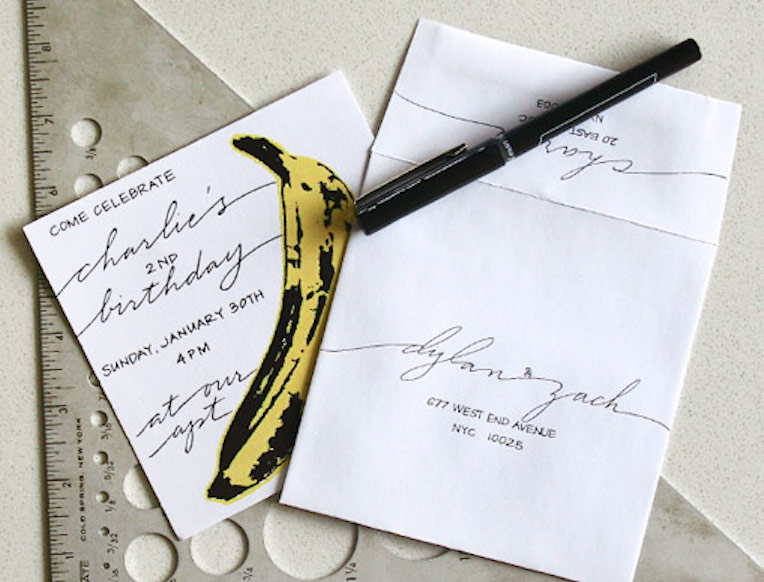 COME CELEBRATE
charlie's
2ND
birthday
SUNDAY, JANUARY 30TH
4PM
at our
apt
dylan & zach
677 WEST END AVENUE
NYC 10025
char
20 EAST
NY
003
8
7
3
2
1
3/8
3/16
5/32
1/8
3/32
1/4
COLD SPRING, NEW YORK